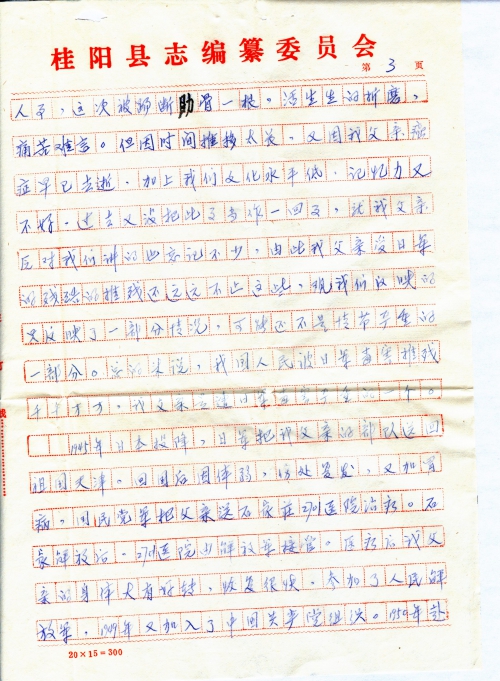 桂阳县志编纂委员会
第 3 页
人员，这次被捞断肋骨一根。活生生的折磨，
痛苦难言。但因时间推移太长，又因我父亲病
症早已去逝，加上我们文化水平低，记忆力又
不好，过去又没把此事当作一回事，就我父亲
反对我们讲的也忘记不少，由此我父亲受日军
的残酷的摧残还远远不止这些，现我们反映的
只反映了一部分情况，可能还不是情节严重的
一部分。总的来说，我国人民被日军毒害摧残
千千万万，我父亲
1945年日本投降，日军把我父亲的部队送回
祖国天津。回国后因体弱，伤处复发，又加胃
病。国民党军把父亲送石家庄270医院治疗。石
家解放后，270医院由解放军接管。医疗后我父
亲的身体大有好转，恢复很快，参加了人民解
放军，1949年又加入了中国共产党组织。1954年赴
20×15=300